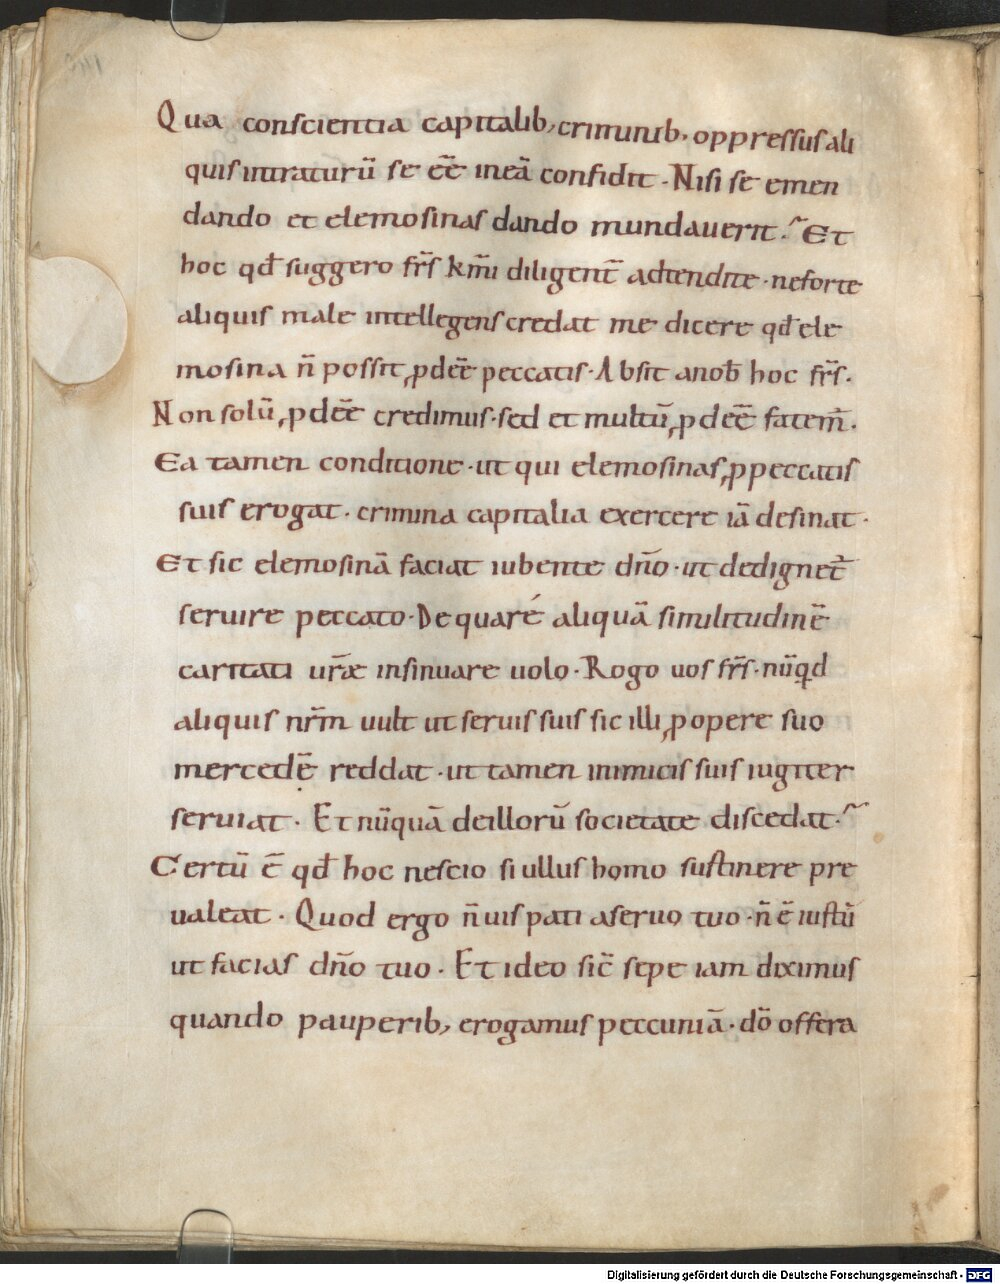 Qua conscientia capitalib; criminib; oppressus ali
quis intraturū se eē̄ ineā confidit · Nisi se emen
dando et elemosinas dando mundauerit · Et
hoc qđ suggero fr̄s km̄i diligent̄ adtendite · neforte
aliquis male intellegens credat me dicere qđ ele
mosina n̄ possit ꝓdeē̄ peccatis · Absit anob̄ hoc fr̄s ·
Non solū ꝓdeē̄ credimus · sed et multū ꝓdeē̄ fatem̄ ·
Ea tamen conditione · ut qui elemosinas ꝓpeccatis
suis erogat · crimina capitalia exercere iā desinat ·
Et sic elemosinā faciat iubente dn̄o · ut dedignet̄
seruire peccato · De quaré aliquā similitudinē
caritati ur̄æ insinuare uolo · Rogo uos fr̄s · nūqđ
aliquis nr̄m uult ut seruis suis sic illi ꝓopere suo
mercedē reddat · ut tamen inimicis suis iugiter
seruiat · Et nūquā deillorū societate discedat ·
Certū ē qđ hoc nescio si ullus homo sustinere pre
ualeat · Quod ergo n̄ uis pati aseruo tuo · n̄ ē iustū
ut facias dn̄o tuo · Et ideo sic̄ sepe iam diximus
quando pauperib; erogamus peccuniā · dō offera
Digitalisierung gefördert durch die Deutsche Forschungsgemeinschaft - DFG